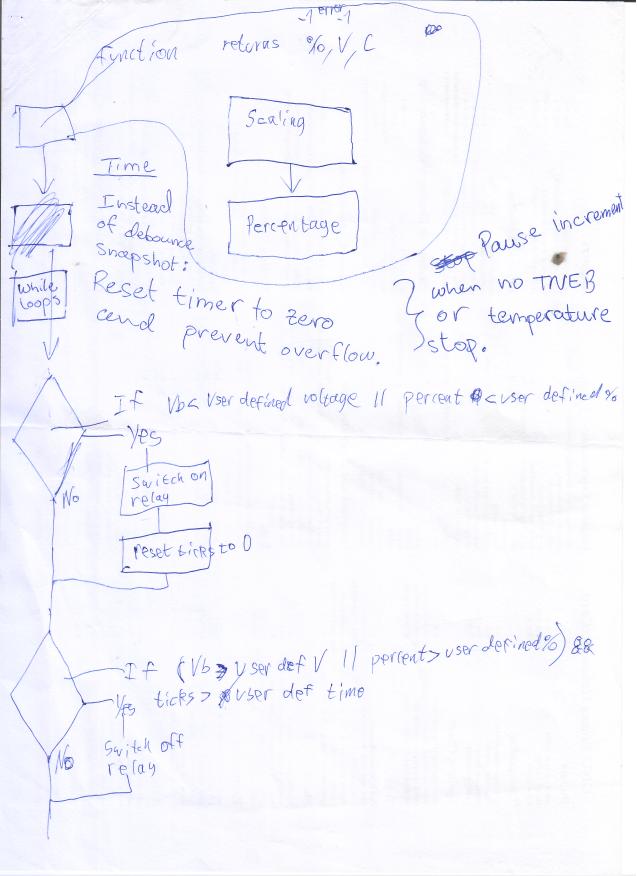 -1 error -1
function returns %, V, C
Scaling
Percentage
Time
Instead
of debounce
snapshot:
Reset timer to zero
and prevent overflow.
Pause increment
when no TNEB
or temperature
stop.
While
loops
If Vb< User defined voltage || percent < user defined %
Yes
No
Switch on
relay
reset ticks to 0
If (Vb> user def V || percent> user defined %) &&
Yes ticks> user def time
No
Switch off
relay